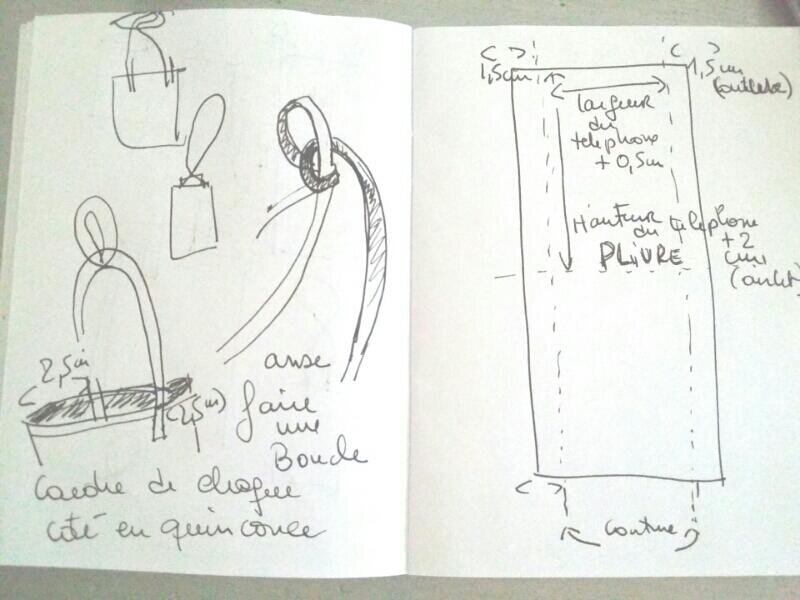 2,5cm
(2,5cm)
anse
faire
une
Boucle
coudre de chaque
coté en quinconce
1,5cm
1,5cm
(ourlet)
largeur
du
telephone
+ 0,5cm
Hauteur du telephone
+ 2
cm
(ourlet)
PLiURE
couture